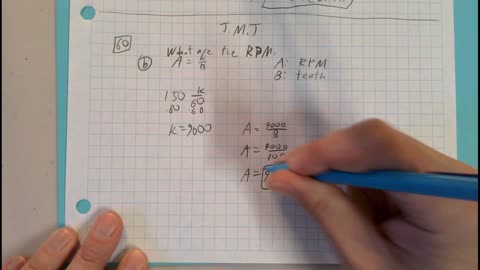 J M J
60
What are the RPM.
b A = k/B
A: RPM
B: teeth
150 k/60
.60 .60
k = 9000
A = 9000/B
A = 9000/
A =